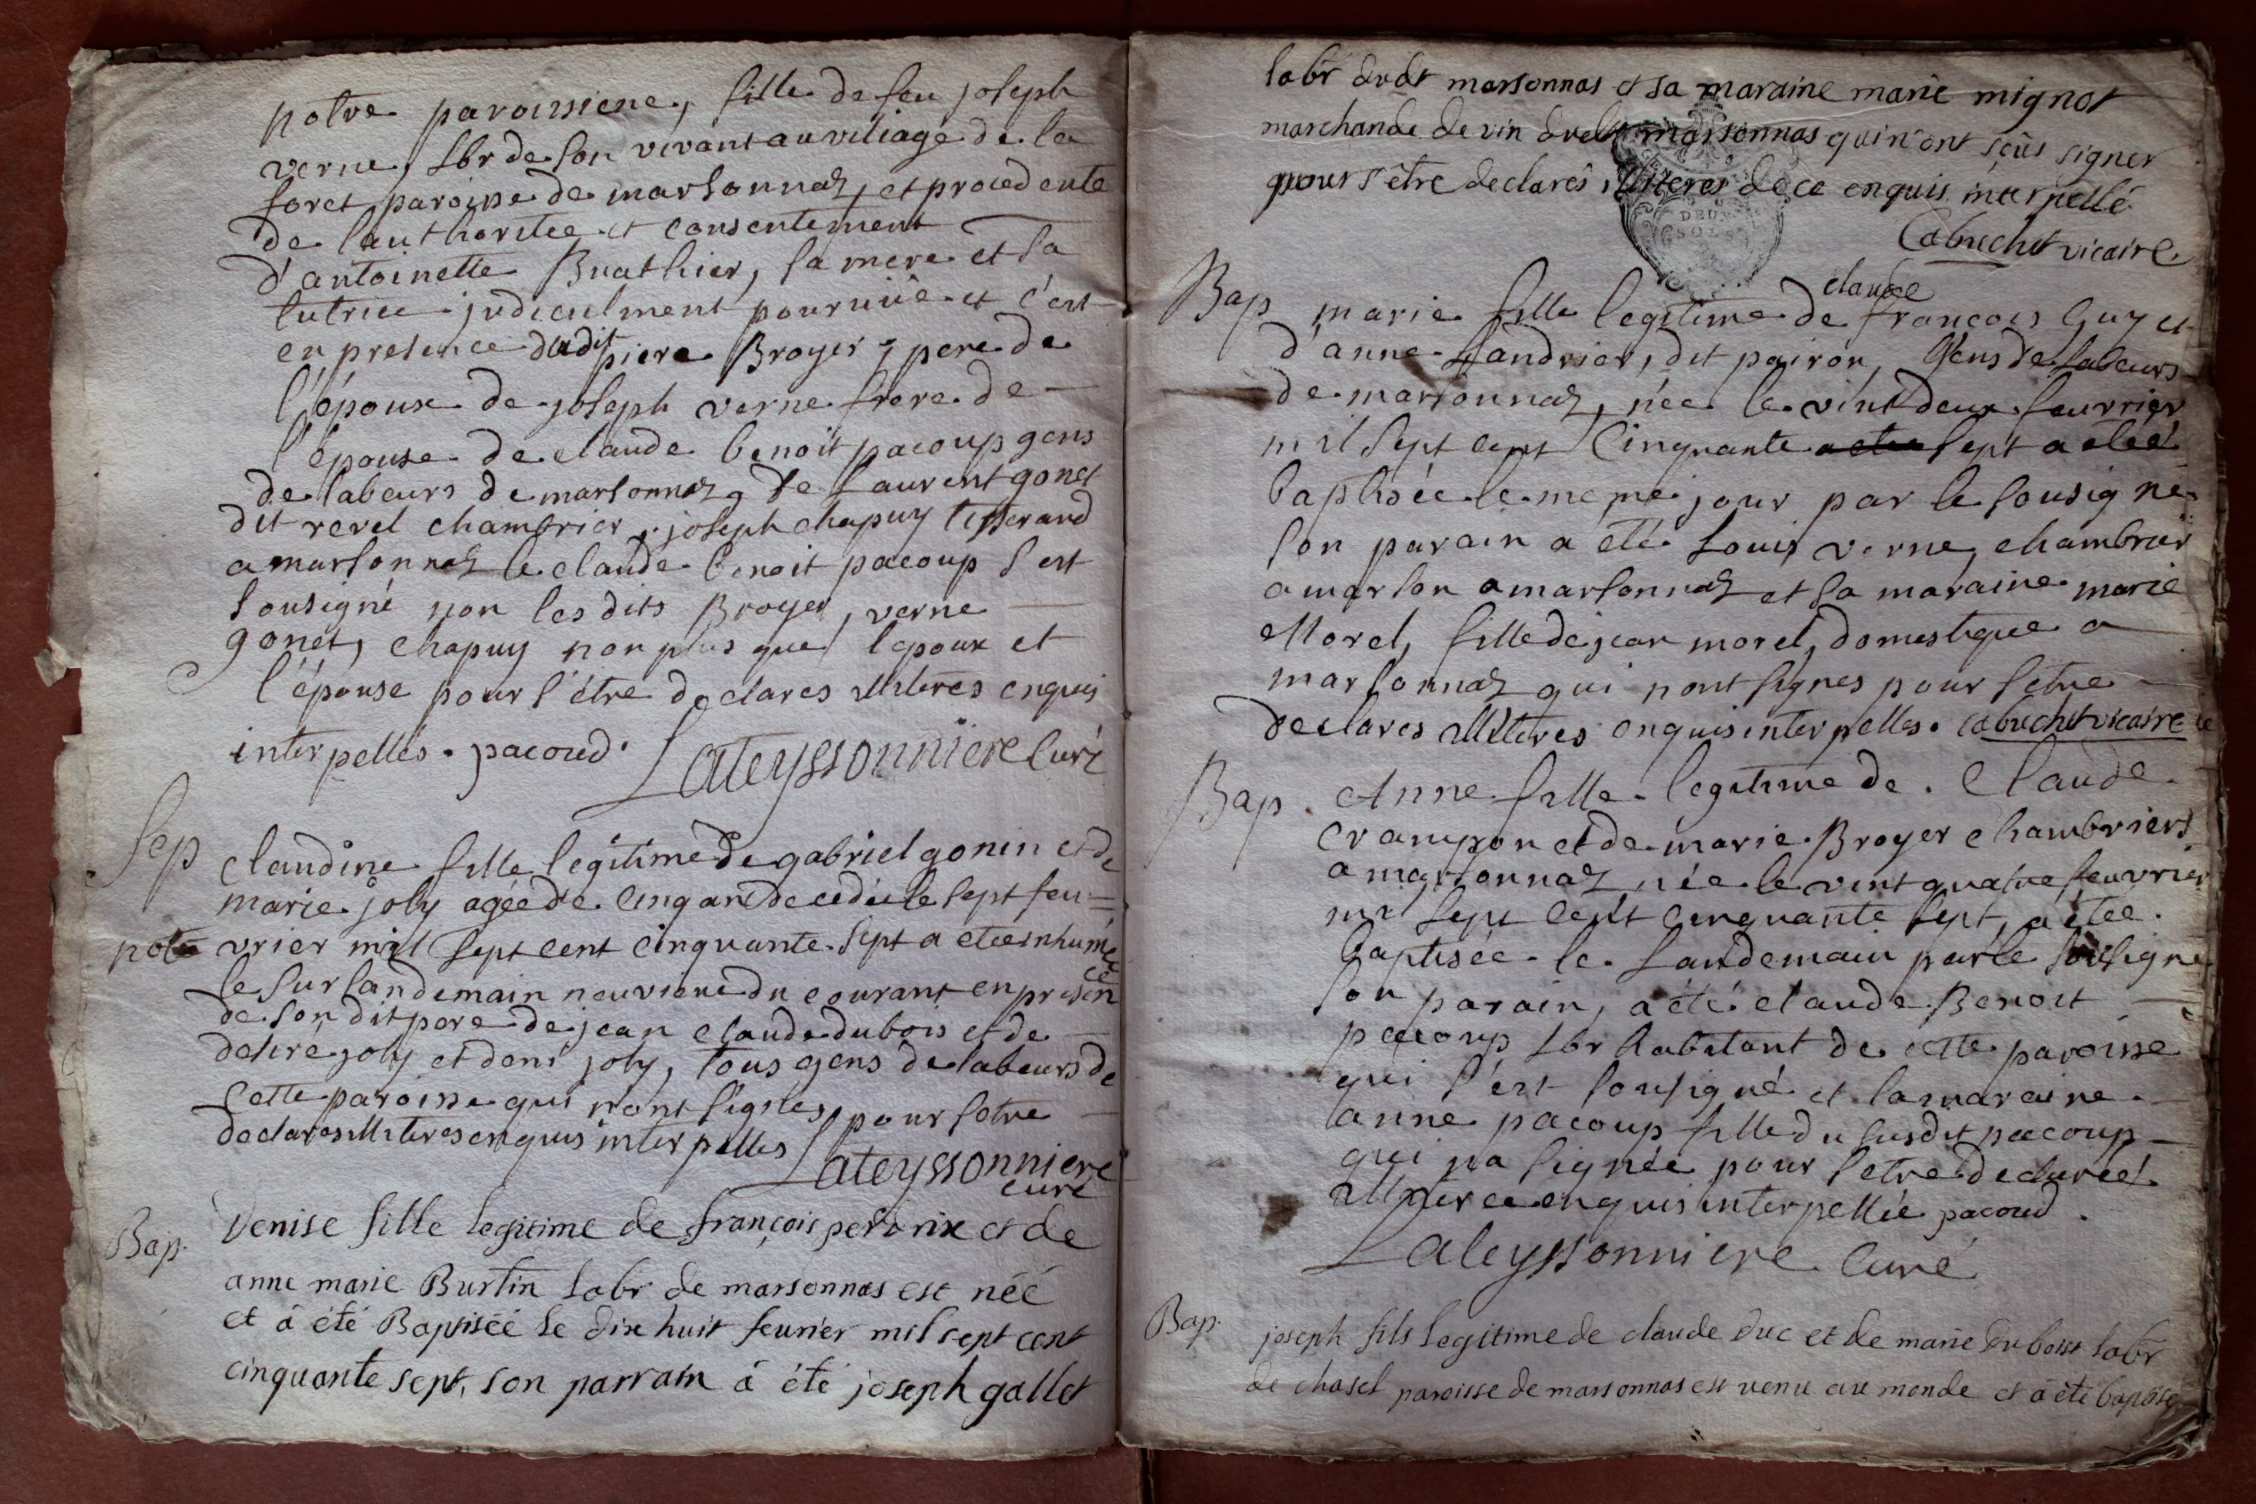 notre paroissiene, fille de feu joseph
verne, lbr de son vivant au viliage de la
foret paroisse de marsonnaz, et procedente
de lauthoritee et consentement
d'antoinette Buathier, sa mere et sa
tutrice judiciulment pourvüe et c'est
en presence dudit piere Broyer, pere de
l'épouse de joseph verne frere de
l'épouse de claude benoit pacoup gens
de labeurs de marsonnaz, de Laurent gonet
dit revel chambrier, joseph chapuy tisserand
a marsonnaz le claude benoit pacoup s'est
sousigné non les dits Broyer, verne
gonet, chapuy non plus que l'epoux et
l'épouse pour s'étre declares illiteres enquis
interpellés. pacoud. Lateyssonniere Curé
Sep claudine fille legitime de gabriel gonin et de
marie joly agée de cinq an decedée le sept feu=
vrier mil sept cent cinquante sept a etee inhumée
le surlandemain neuvieme du courant en presen
ce
de son dit pere de jean claude dubois et de
joly et denis joly, tous gens de labeurs de
cette paroisse qui n'ont signes pour setre
declares illiteres enquis interpelles Lateyssonniere
curé
Bap. Denise fille legitime de françois perdrix et de
anne marie Burtin labr de marsonnas est néé
et á été Baptiséé le dix huit feurier mil sept cent
cinquante sept, son parrain á été joseph gallet
labr dudt marsonnas et sa maraine marie mignot
marchande de vin dudt marsonnas qui n'ont sçûs signer
pour s'être declarés illiteres de ce enquis interpellé
DEUX
SOLS
Cabuchet vicaire
claude
Bap marie fille legitime de françois Guy et
d'anne Landrier, dit pairon, Gens de labeurs
de marsonnaz, née le vint deux feuvrier
mil sept cent Cinquante sept a etéé
baptisée le meme jour par le sousigne
son parain a eté Louis verne, chambrier
a marson a marsonnaz et sa maraine marie
Morel, fille de jean morel, domestique a
marsonnaz qui nont signes pour setre
declares illiteres enquis interpelles. Cabuchet vicaire
Bap. Anne fille legitime de. Claude
crampon et de marie Broyer chambriers
a marsonnaz née le vint quatre feuvrier
mil sept cent cinquante sept, a etée
baptisée le Landemain par le sousigne
son parain, a été claude Benoit
pacoup lbr habitant de cette paroisse
qui s'est sousigné et la maraine
anne pacoup fille du susdit pacoup
qui na signée pour setre declareé
illiteree enquis interpellée pacoud.
Lateyssonniere Curé
Bap. joseph fils legitime de claude Duc et de marie Dubois labr
de chasel paroisse de marsonnas est venu au monde et á été baptisé